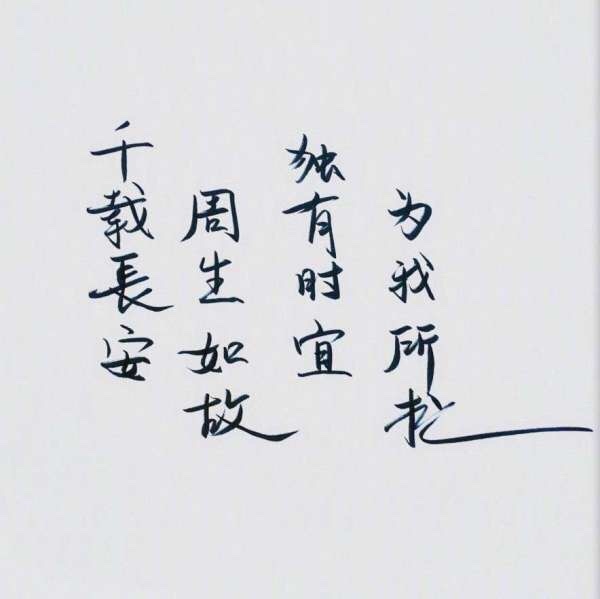 千载長安
周生如故
独有时宜
为我所